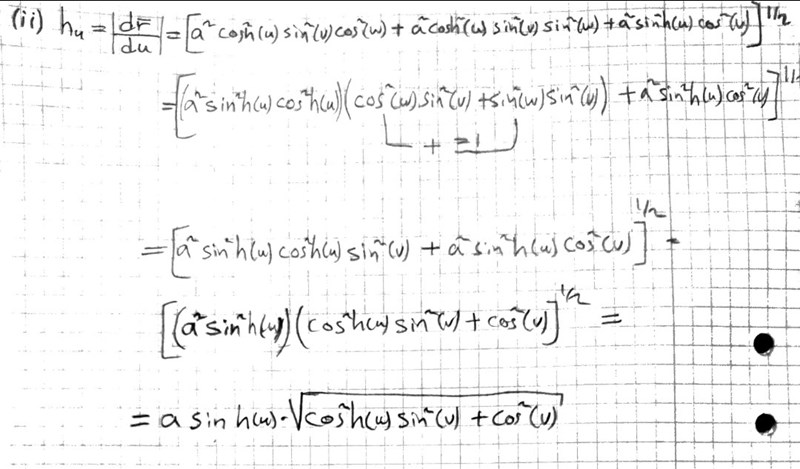 (ii) h_u = |dr̄/du| = [a² cosh²(u) sin²(v) cos²(w) + a² cosh²(u) sin²(v) sin²(w) + a² sinh²(u) cos²(v)]^1/2
= [(a² sin²h(u) cos²h(u))(cos²(w) sin²(v) + sin²(w) sin²(v)) + a² sin²h(u) cos²(v)]^1/2
+ = 1
= [a² sin²h(u) cos²h(u) sin²(v) + a² sin²h(u) cos²(v)]^1/2 =
[(a² sin²h(u)) (cos²h(u) sin²(v) + cos²(v)]^1/2 =
= a sinh(u) · √cos²h(u) sin²(v) + cos²(v)